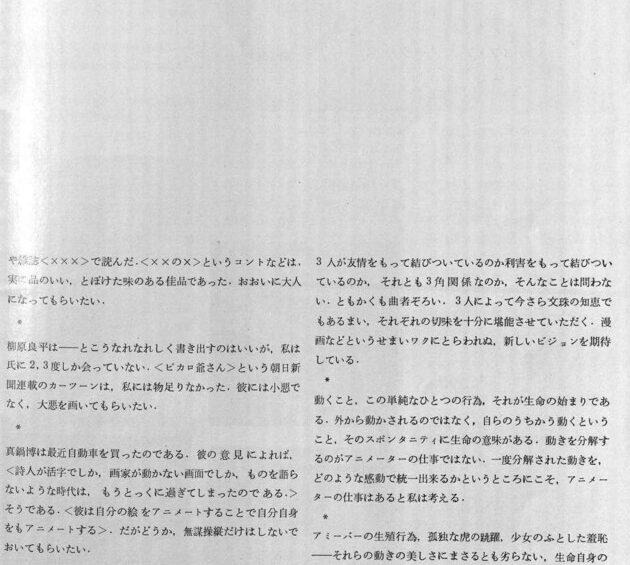 や雑誌<×××>で読んだ.<××の×>というコントなどは,
実に品のいい, とぼけた味のある佳品であった. おおいに大人
になってもらいたい.
*
柳原良平は――とこうなれなれしく書き出すのはいいが, 私は
氏に2, 3度しか会っていない. <ピカロ爺さん>という朝日新
聞連載のカーツーンは, 私には物足りなかった. 彼には小悪で
なく, 大悪を画いてもらいたい.
*
真鍋博は最近自動車を買ったのである. 彼の意見によれば,
<詩人が活字でしか, 画家が動かない画面でしか, ものを語ら
ないような時代は, もうとっくに過ぎてしまったのである.>
そうである. <彼は自分の絵をアニメートすることで自分自身
をもアニメートする>. だがどうか, 無謀操縦だけはしないで
おいてもらいたい.
3人が友情をもって結びついているのか利害をもって結びつい
ているのか, それとも3角関係なのか, そんなことは問わな
い. ともかくも曲者ぞろい. 3人によって今さら文珠の知恵で
もあるまい, それぞれの切味を十分に堪能させていただく. 漫
画などというせまいワクにとらわれぬ, 新しいビジョンを期待
している.
*
動くこと, この単純なひとつの行為, それが生命の始まりであ
る. 外から動かされるのではなく, 自らのうちかう動くという
こと, そのスポンタニティに生命の意味がある. 動きを分解す
るのがアニメーターの仕事ではない. 一度分解された動きを,
どのような感動で統一出来るかというところにこそ, アニメー
ターの仕事はあると私は考える.
*
アミーバーの生殖行為, 孤独な虎の跳躍, 少女のふとした羞恥
――それらの動きの美しさにまさるとも劣らない, 生命自身の